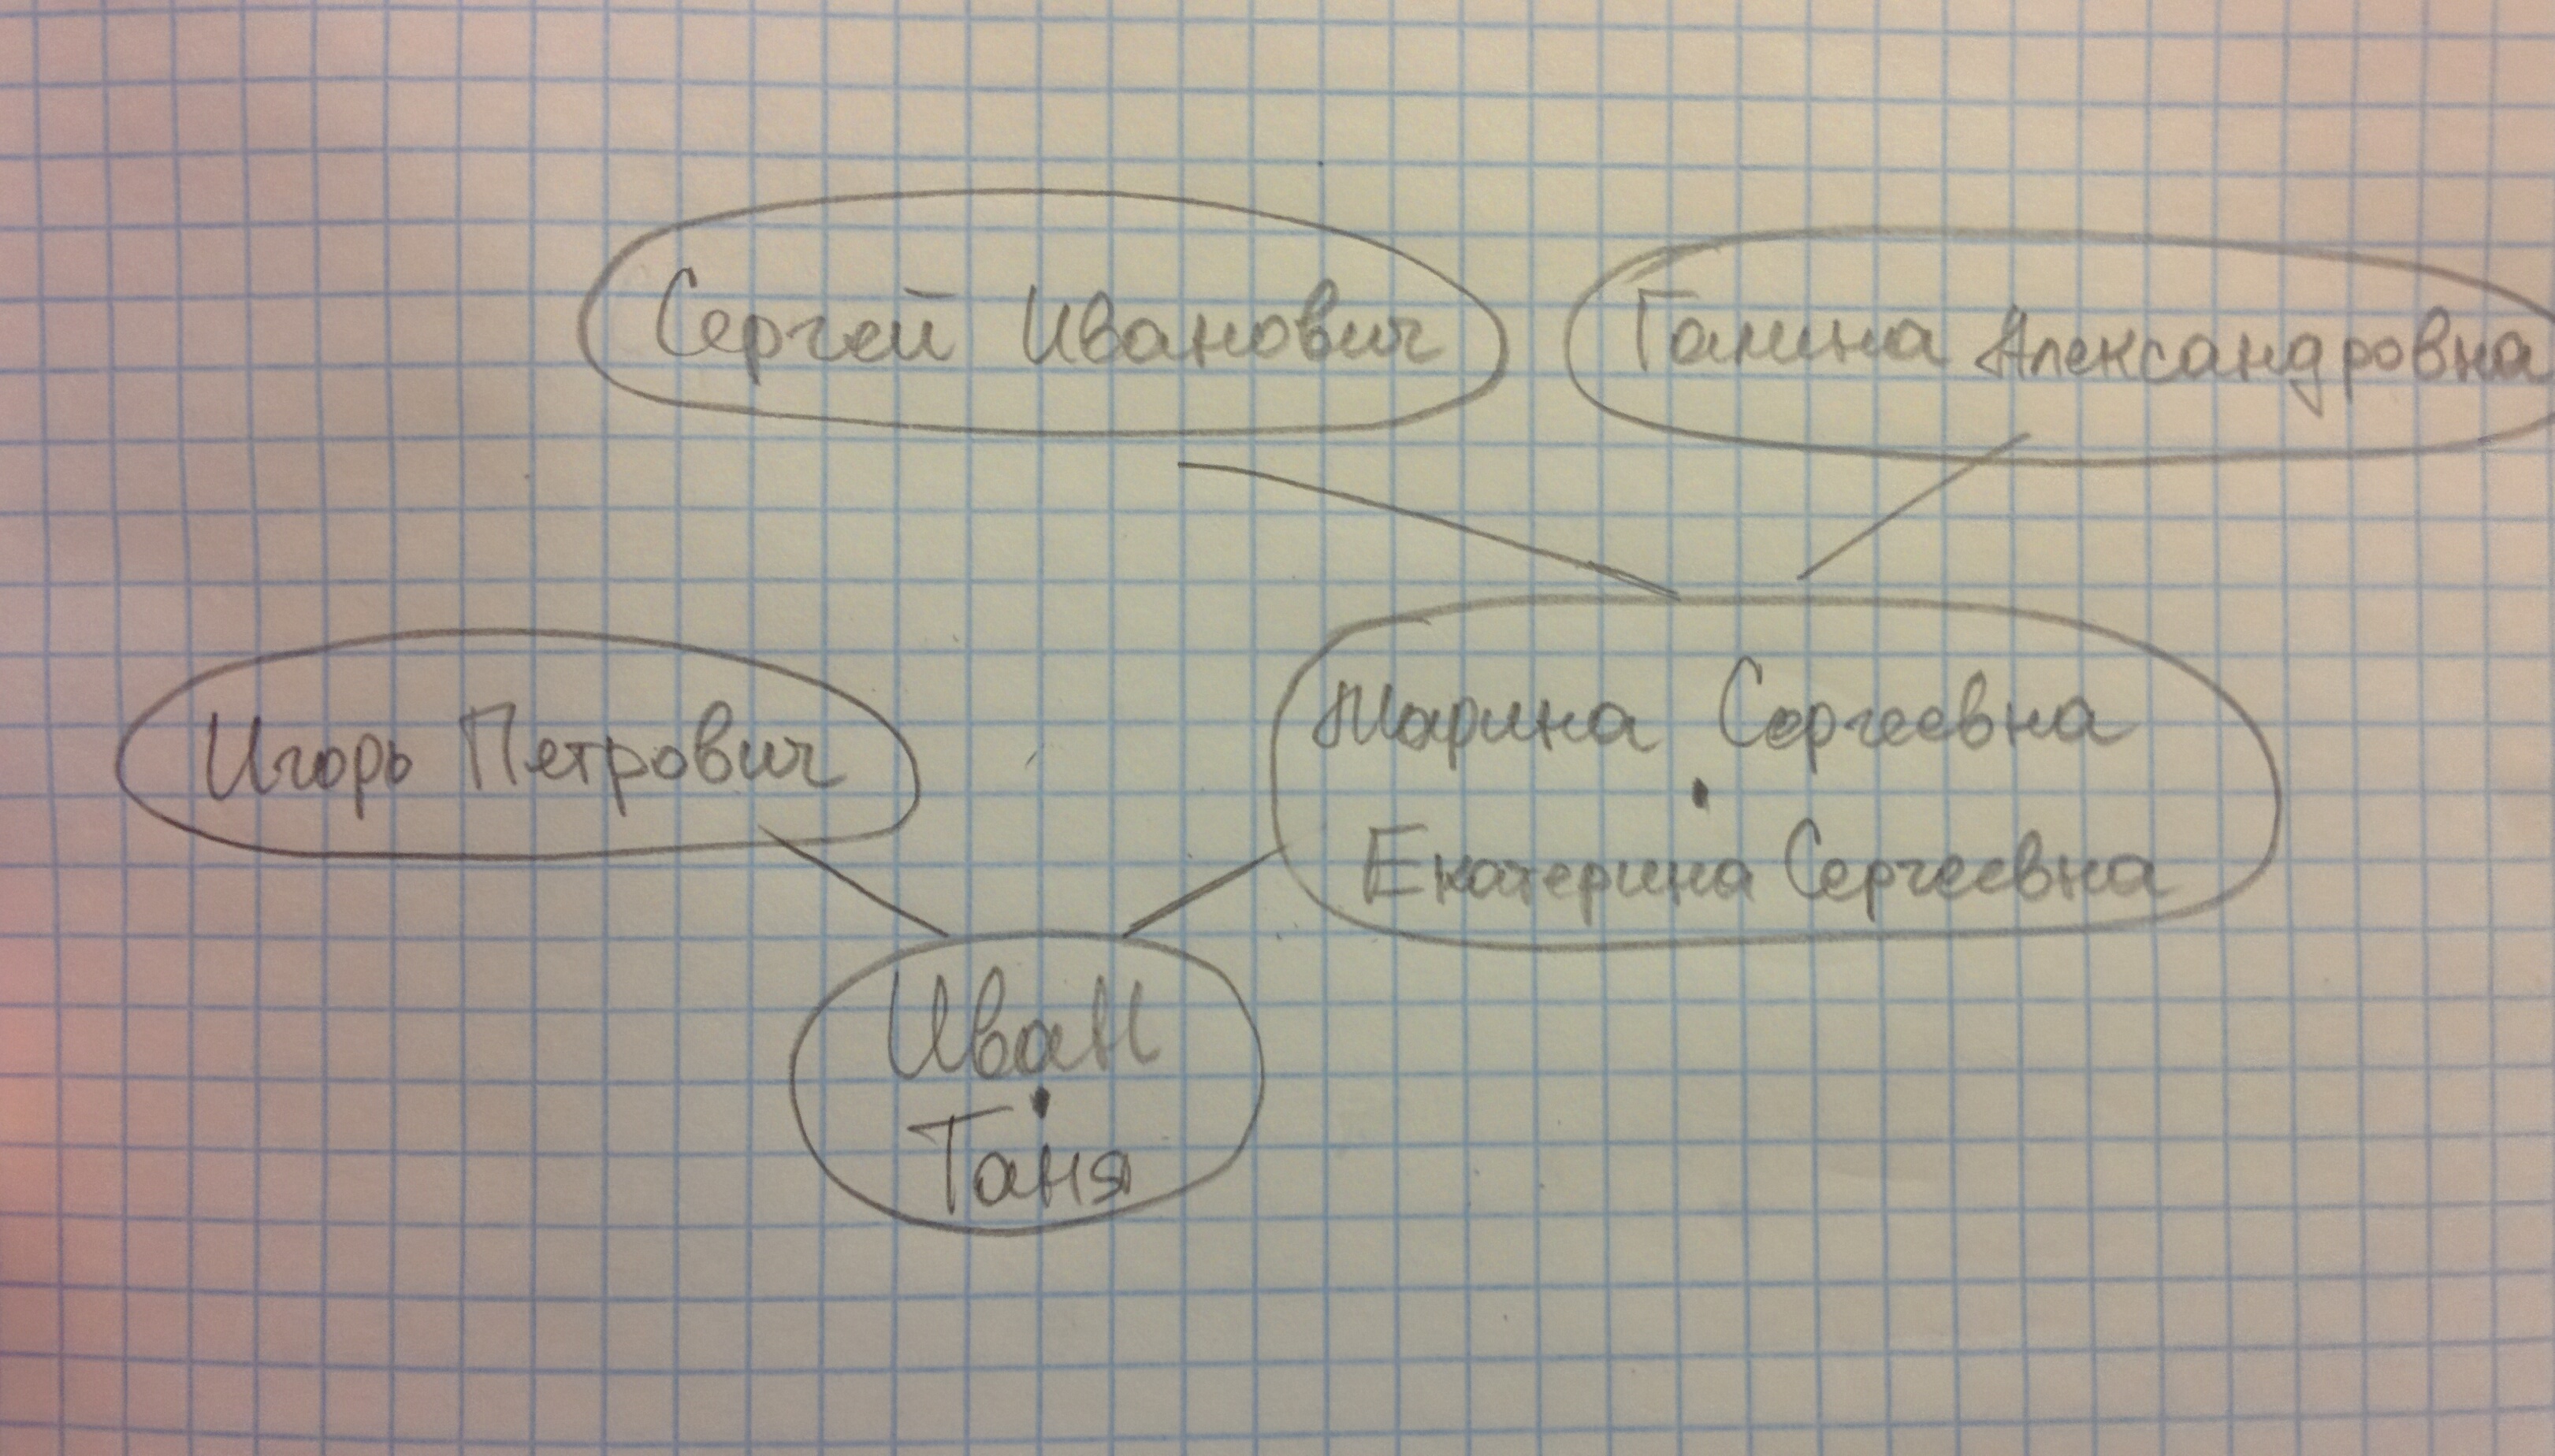 Сергей Иванович
Галина Александровна
Игорь Петрович
Марина Сергеевна
Екатерина Сергеевна
Иван
Таня